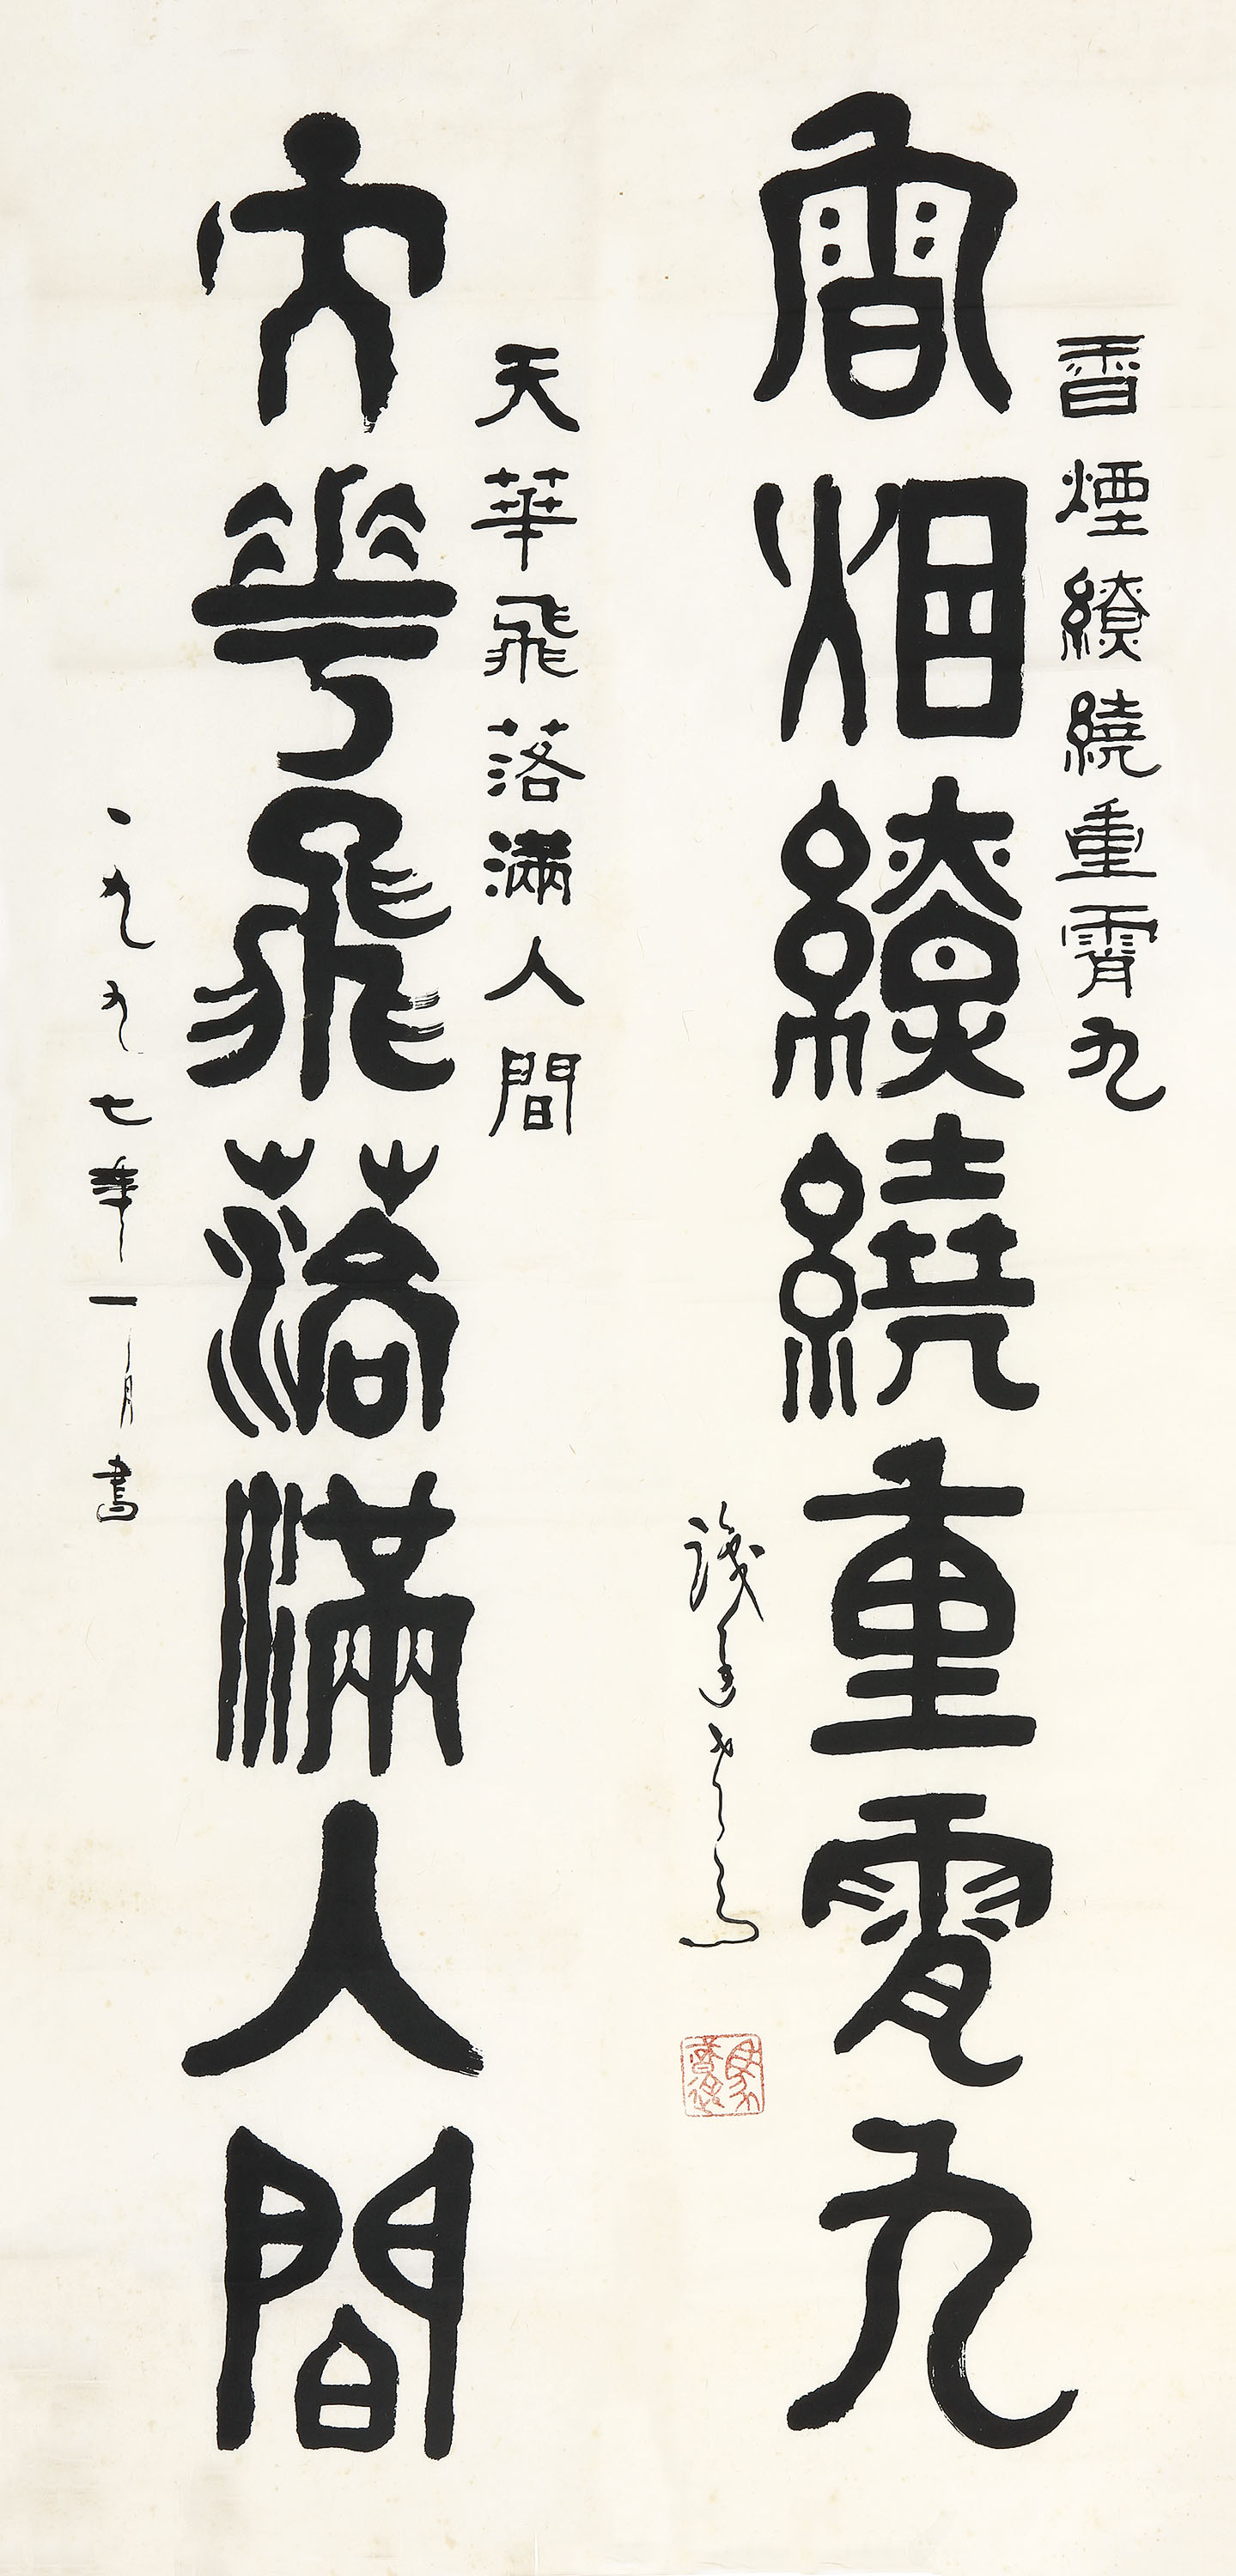 香煙繚繞重霄九
香烟繚繞重霄九
識途老馬
天華飛落滿人間
天華飛落滿人間
一九九七年一月書